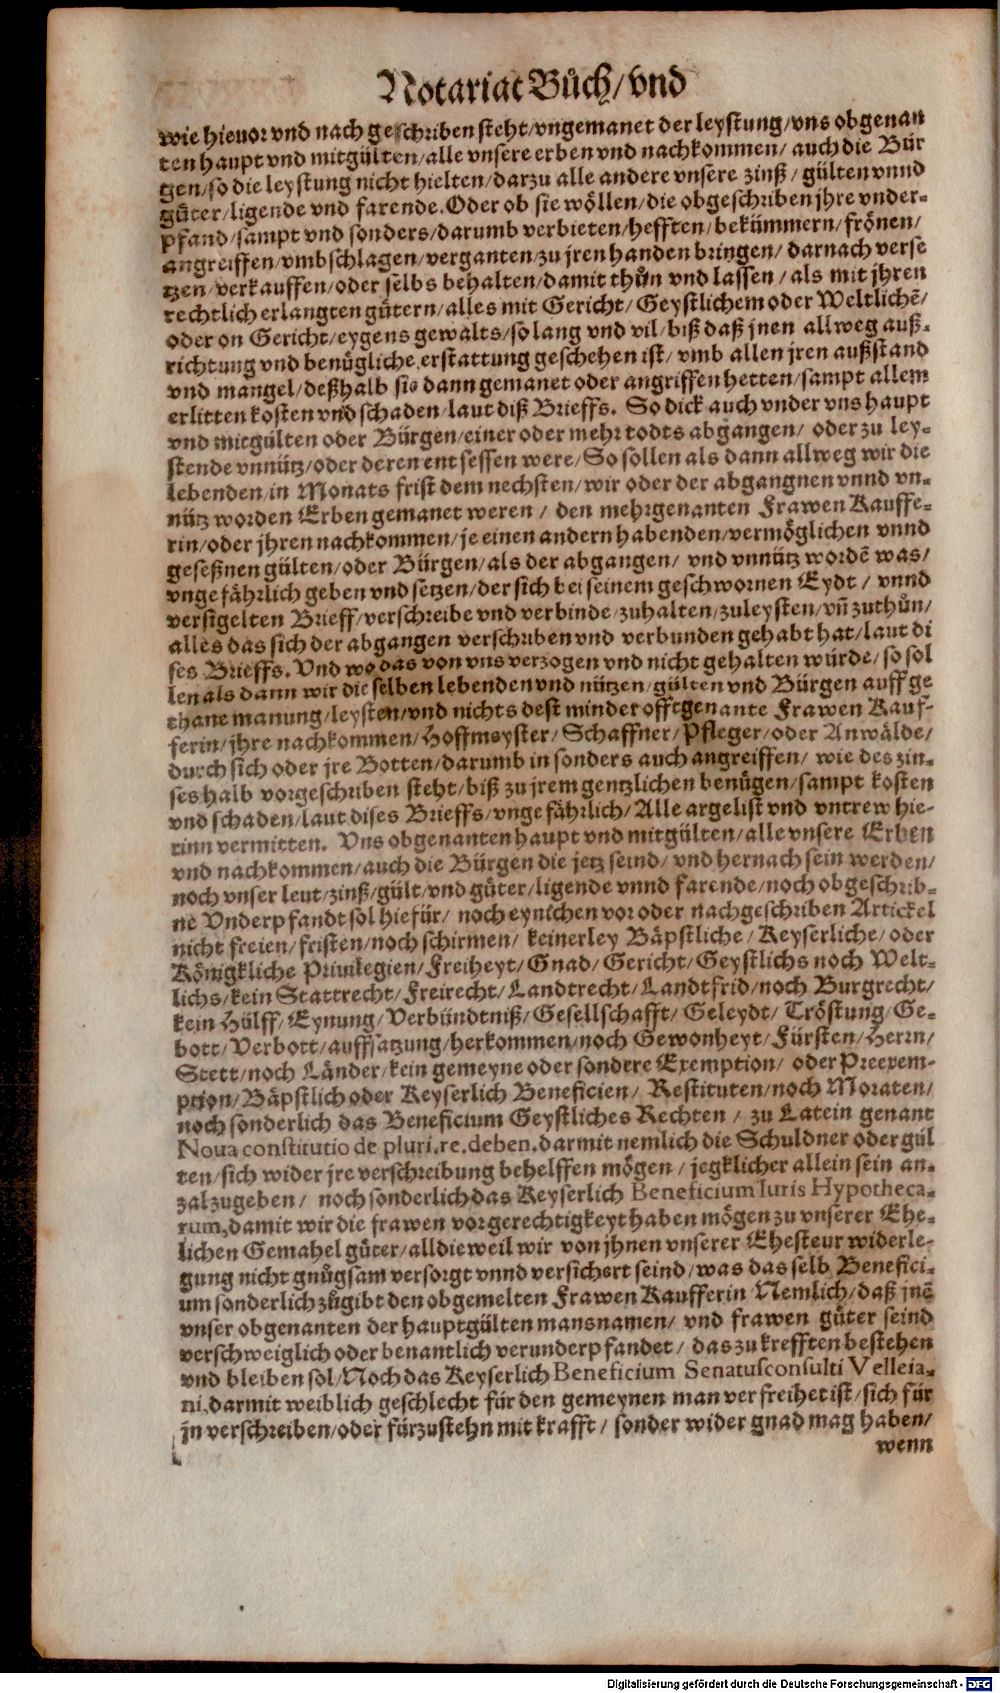 Notariat Bůch/ vnd
wie hieuor vnd nach geschriben steht/ vngemanet der leystung/ vns obgenan
ten haupt vnd mitgülten/ alle vnsere erben vnd nachkommen/ auch die Bür
gen/ so die leystung nicht hielten/ darzu alle andere vnsere zinß/ gülten vnnd
gůter/ ligende vnd farende. Oder ob sie wöllen/ die obgeschriben jhre vnder-
pfand/ sampt vnd sonders/ darumb verbieten/ hefften/ bekümmern/ frönen/
angreiffen/ vmbschlagen/ verganten/ zu jren handen bringen/ darnach verse
tzen/ verkauffen/ oder selbs behalten/ damit thůn vnd lassen/ als mit jhren
rechtlich erlangten gůtern/ alles mit Gericht/ Geystlichem oder Weltlichē/
oder on Gericht/ eygens gewalts/ so lang vnd vil/ biß daß jnen allweg auß-
richtung vnd benůgliche erstattung geschehen ist/ vmb allen jren außstand
vnd mangel/ deßhalb sie dann gemanet oder angriffen hetten/ sampt allem
erlitten kosten vnd schaden/ laut diß Brieffs. So dick auch vnder vns haupt
vnd mitgülten oder Bürgen/ einer oder mehr todts abgangen/ oder zu ley-
stende vnnütz/ oder deren entsessen were/ So sollen als dann allweg wir die
lebenden/ in Monats frist dem nechsten/ wir oder der abgangnen vnnd vn-
nütz worden Erben gemanet weren/ den mehrgenanten Frawen Kauffe-
rin/ oder jhren nachkommen/ je einen andern habenden/ vermöglichen vnnd
geseßnen gülten/ oder Bürgen/ als der abgangen/ vnd vnnütz wordē was/
vngefährlich geben vnd setzen/ der sich bei seinem geschwornen Eydt/ vnnd
versigelten Brieff/ verschreibe vnd verbinde/ zuhalten/ zuleysten/ vñ zuthůn/
alles das sich der abgangen verschriben vnd verbunden gehabt hat/ laut di
ses Brieffs. Vnd wo das von vns verzogen vnd nicht gehalten würde/ so sol
len als dann wir die selben lebenden vnd nützen/ gülten vnd Bürgen auff ge
thane manung/ leysten/ vnd nichts dest minder offtgenante Frawen Kauf-
ferin/ jhre nachkommen/ Hoffmeyster/ Schaffner/ Pfleger/ oder Anwälde/
durch sich oder jre Botten/ darumb in sonders auch angreiffen/ wie des zin-
ses halb vorgeschriben steht/ biß zu jrem gentzlichen benůgen/ sampt kosten
vnd schaden/ laut dises Brieffs/ vngefährlich/ Alle argelist vnd vntrew hie-
rinn vermitten. Vns obgenanten haupt vnd mitgülten/ alle vnsere Erben
vnd nachkommen/ auch die Bürgen die jetz seind/ vnd hernach sein werden/
noch vnser leut/ zinß/ gült/ vnd gůter/ ligende vnnd farende/ noch obgeschrib-
ne Vnderpfandt sol hiefür/ noch eynichen vor oder nachgeschriben Artickel
nicht freien/ fristen/ noch schirmen/ keinerley Bäpstliche/ Keyserliche/ oder
Königkliche Priuilegien/ Freiheyt/ Gnad/ Gericht/ Geystlichs noch Welt-
lichs/ kein Stattrecht/ Freirecht/ Landtrecht/ Landtfrid/ noch Burgrecht/
kein Hülff/ Eynung/ Verbündtniß/ Gesellschafft/ Geleydt/ Tröstung/ Ge-
bott/ Verbott/ auffsatzung/ herkommen/ noch Gewonheyt/ Fürsten/ Herrn/
Stett/ noch Länder/ kein gemeyne oder sondere Exemption/ oder Preexem-
ption/ Bäpstlich oder Keyserlich Beneficien/ Restituten/ noch Moraten/
noch sonderlich das Beneficium Geystliches Rechten/ zu Latein genant
Noua constitutio de pluri. re. deben. darmit nemlich die Schuldner oder gül
ten/ sich wider jre verschreibung behelffen mögen/ jegklicher allein sein an-
zal zugeben/ noch sonderlich das Keyserlich Beneficium Iuris Hypotheca-
rum, damit wir die frawen vorgerechtigkeyt haben mögen zu vnserer Ehe-
lichen Gemahel gůter/ alldieweil wir von jhnen vnserer Ehesteur widerle-
gung nicht gnůgsam versorgt vnnd versichert seind/ was das selb Benefici-
um sonderlich zůgibt den obgemelten Frawen Kaufferin Nemlich/ daß jnē
vnser obgenanten der hauptgülten mansnamen/ vnd frawen gůter seind
verschweiglich oder benantlich verunderpfandet/ das zu krefften bestehen
vnd bleiben sol/ Noch das Keyserlich Beneficium Senatusconsulti Velleia-
ni, darmit weiblich geschlecht für den gemeynen man verfreihet ist/ sich für
jn verschreiben/ oder fürzustehn mit krafft/ sonder wider gnad mag haben/
wenn
Digitalisierung gefördert durch die Deutsche Forschungsgemeinschaft - DFG